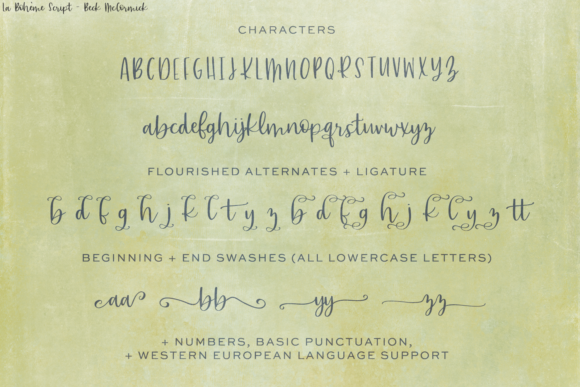 La Bohème Script - Beck McCormick
CHARACTERS
ABCDEFGHIJKLMNOPQRSTUVWXYZ
abcdefghijklmnopqrstuvwxyz
FLOURISHED ALTERNATES + LIGATURE
b d f g h j k l t y z b d f g h j k l y z tt
BEGINNING + END SWASHES (ALL LOWERCASE LETTERS)
aa bb yy zz
+ NUMBERS, BASIC PUNCTUATION,
+ WESTERN EUROPEAN LANGUAGE SUPPORT